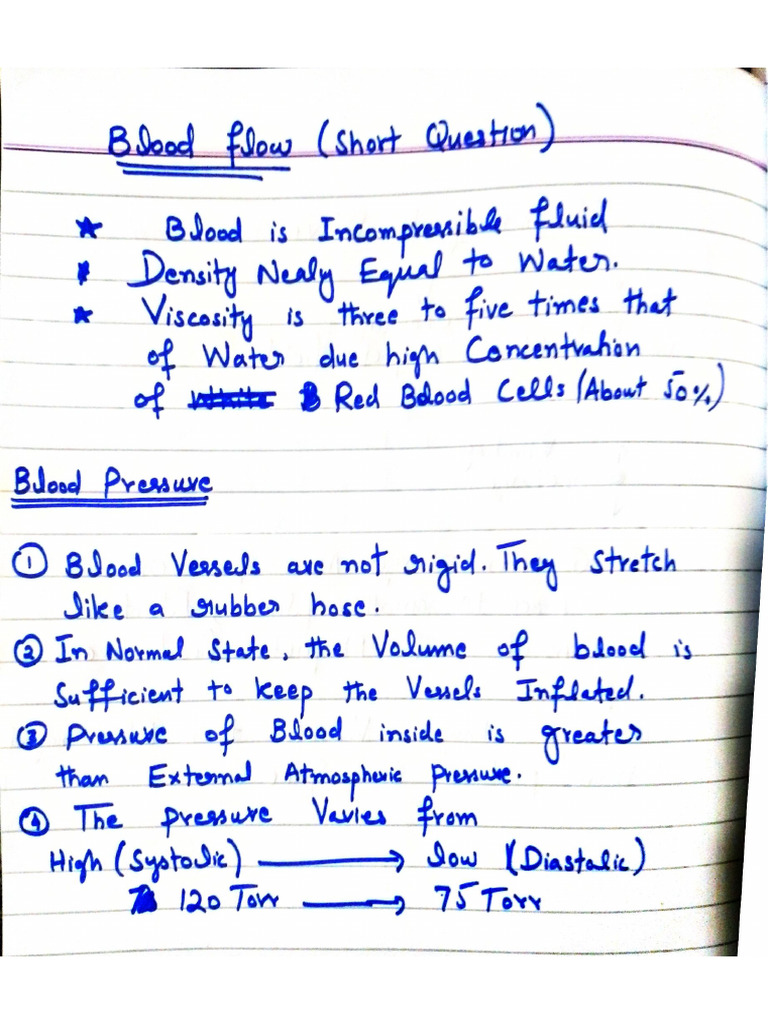 Blood flow (Short Question)
★ Blood is Incompressible fluid
★ Density Nealy Equal to Water.
★ Viscosity is three to five times that
of Water due high Concentration
of Red Bdood Cells (About 50%)
Blood Pressure
① Blood Vessels are not rigid. They stretch
like a rubber hose.
② In Normal State, the Volume of blood is
Sufficient to keep the Vessels Inflated.
③ Pressure of Blood inside is greater
than External Atmospheric pressure.
④ The pressure Varies from
High (Systolic) ⟶ low (Diastalic)
120 Torr ⟶ 75 Torr